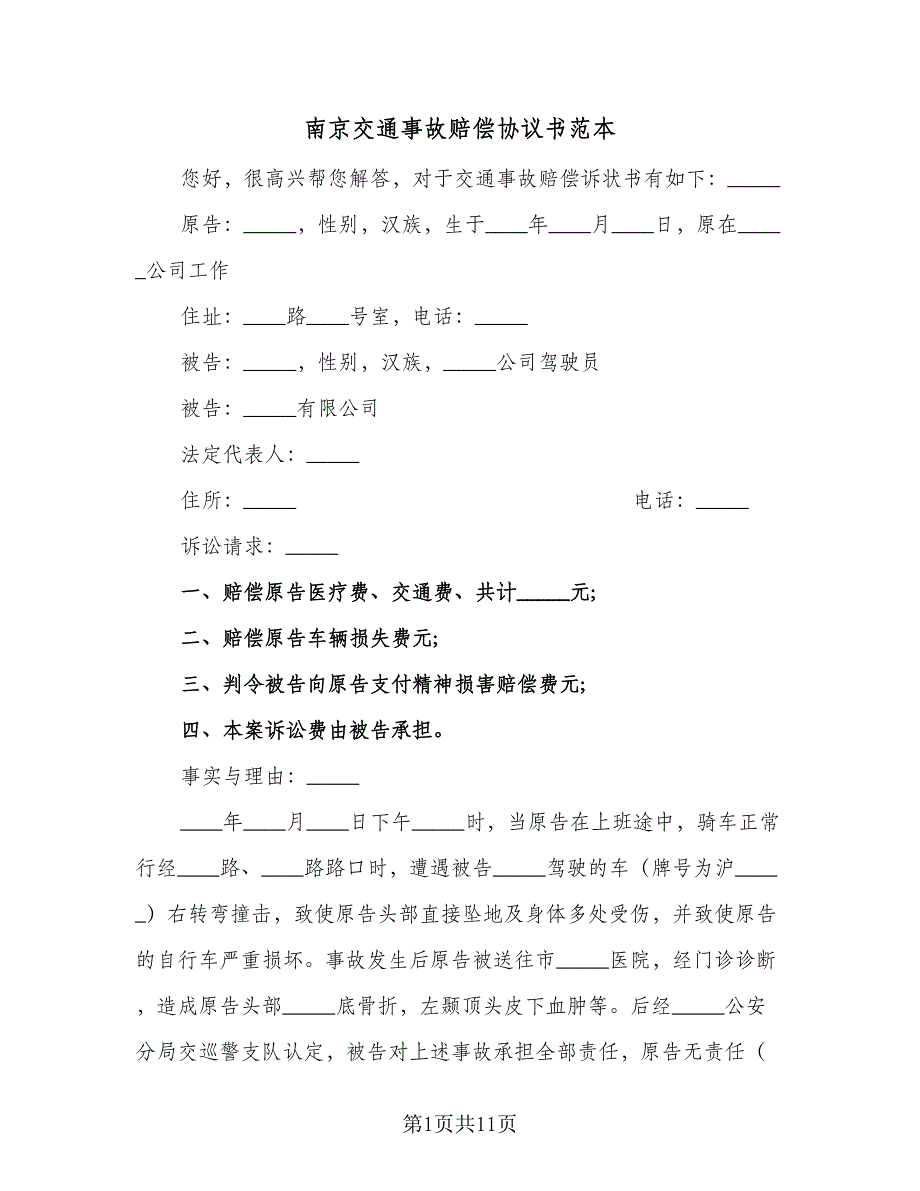 南京交通事故赔偿协议书范本
您好，很高兴帮您解答，对于交通事故赔偿诉状书有如下：_____
原告：_____，性别，汉族，生于____年____月____日，原在____
_公司工作
住址：____路____号室，电话：_____
被告：_____，性别，汉族，_____公司驾驶员
被告：_____有限公司
法定代表人：_____
住所：_____ 电话：_____
诉讼请求：_____
一、赔偿原告医疗费、交通费、共计_____元;
二、赔偿原告车辆损失费元;
三、判令被告向原告支付精神损害赔偿费元;
四、本案诉讼费由被告承担。
事实与理由：_____
____年____月____日下午_____时，当原告在上班途中，骑车正常
行经____路、____路路口时，遭遇被告_____驾驶的车（牌号为沪____
_）右转弯撞击，致使原告头部直接坠地及身体多处受伤，并致使原告
的自行车严重损坏。事故发生后原告被送往市_____医院，经门诊诊断
，造成原告头部_____底骨折，左颞顶头皮下血肿等。后经_____公安
分局交巡警支队认定，被告对上述事故承担全部责任，原告无责任（
第1页共11页